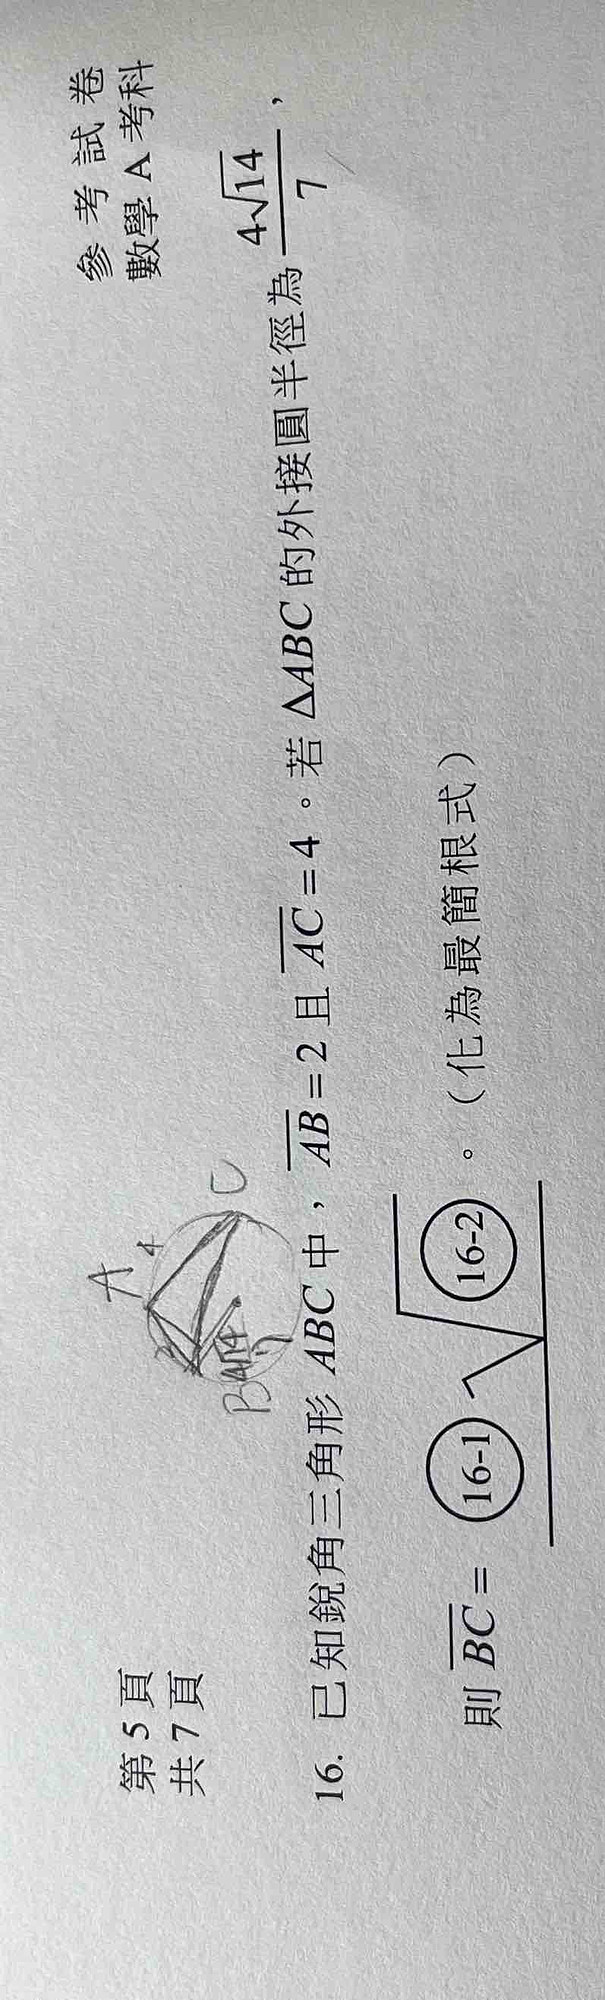 第 5 頁
共 7 頁
參 考 試 卷
數學 A 考科
A
4
B
C
4√14
7
16. 已知銳角三角形 ABC 中，AB = 2 且 AC = 4。若 ΔABC 的外接圓半徑為 4√14/7，
則 BC = 16-1 √16-2 。（化為最簡根式）